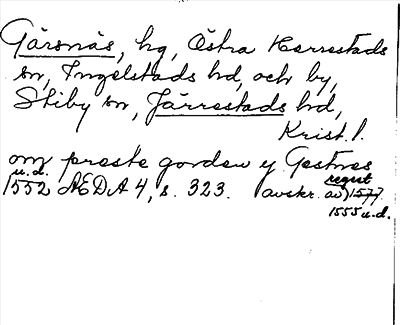 Gärsnäs, hg, Östra Herrestads
sn, Ingelstads hd, och by,
Stiby sn, Järrestads hd,
Krist. l.
om preste gorden y Gestnes
u.d.
1552 ÆDA 4, s. 323. avskr. av) 1577.
regest
1555 u.d.